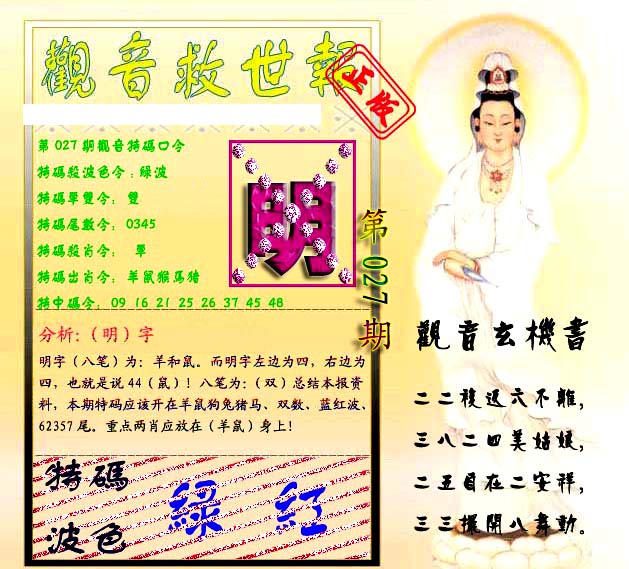 觀音救世報
正版
第027期觀音特碼口令
特碼殺波色令:綠波
特碼單雙令: 雙
特碼尾數令: 0345
特碼殺肖令: 單
特碼出肖令: 羊鼠猴馬猪
特中碼令: 09 16 21 25 26 37 45 48
明
第027期
分析:(明)字
明字(八笔)为:羊和鼠。而明字左边为四,右边为
四,也就是说44(鼠)!八笔为:(双)总结本报资
料,本期特码应该开在羊鼠狗兔猪马、双数、蓝红波、
62357尾。重点两肖应放在(羊鼠)身上!
特碼
波色
綠 紅
觀音玄機書
二二複退六不離,
三八二四美姑娘,
二五自在二安祥,
三三擺開八舞動。